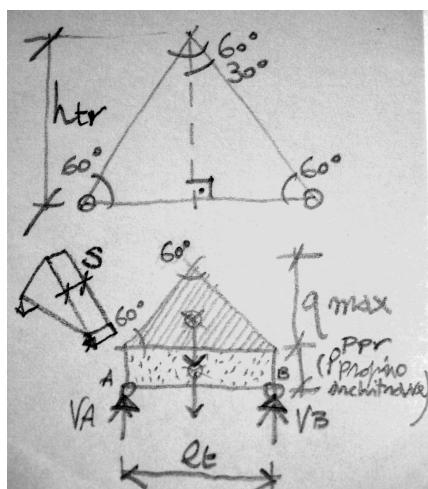 60°
30°
htr
60°
60°
60°
S
60°
q max
Ppr
(Pproprio
architrave)
A
B
VA
VB
lt